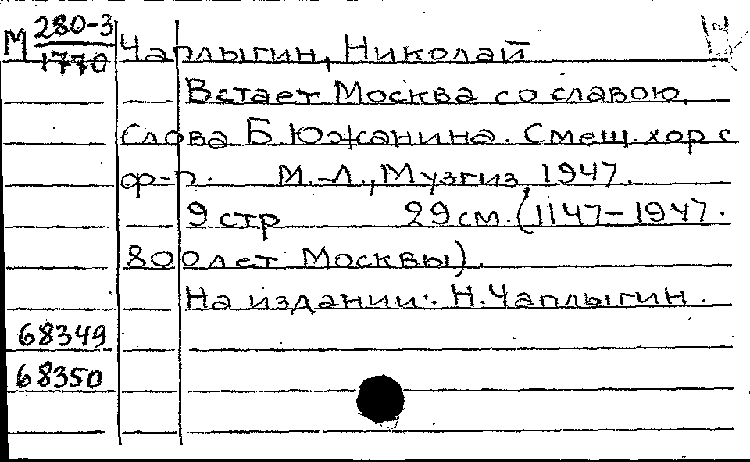 М 280-3
1770
Чаплыгин, Николай
Встает Москва со славою.
Слова Б. Южанина. Смеш. хор с
ф-п. М.-Л., Музгиз, 1947.
9 стр 29 см. (1147-1947.
800 лет Москвы).
На издании: Н. Чаплыгин.
68349
68350